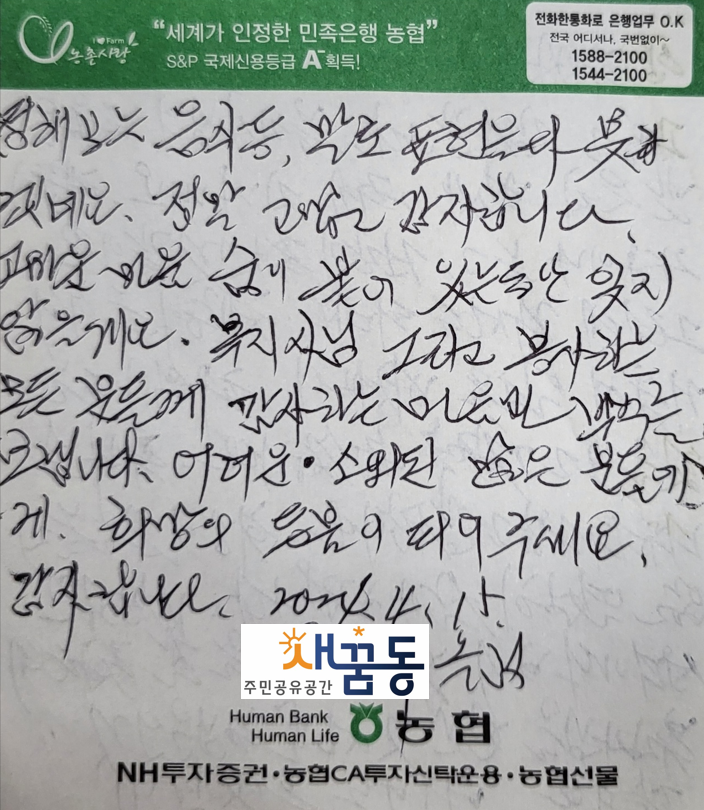 I ♥ Farm
농촌사랑
“세계가 인정한 민족은행 농협”
S&P 국제신용등급 A- 획득!
전화한통화로 은행업무 O.K
전국 어디서나, 국번없이~
1588-2100
1544-2100
음식등, 말로 표현은 다 못하
겠네요. 정말 고맙고 감사합니다.
고마운 마음 숨이 붙어 있는동안 잊지
않을게요. 복지사님 그리고 봉사하는
모든 분들께 감사하는 마음만 백번
드립니다. 어려운·소외된 많은 분들에
게. 희망의 등불이 되어 주세요.
감사합니다. 2024. 4. 15.
새꿈동
주민공유공간
Human Bank
Human Life
농협
NH투자증권·농협CA투자신탁운용·농협선물